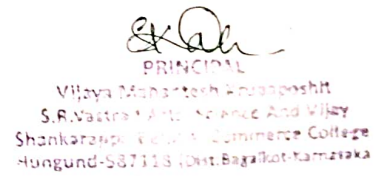 PRINCIPAL
Vijaya Mahantesh
S.R. Arts Science And Vijay
Shankarappa Commerce College
Hungund-587118 (Dist.Bagalkot-Karnataka